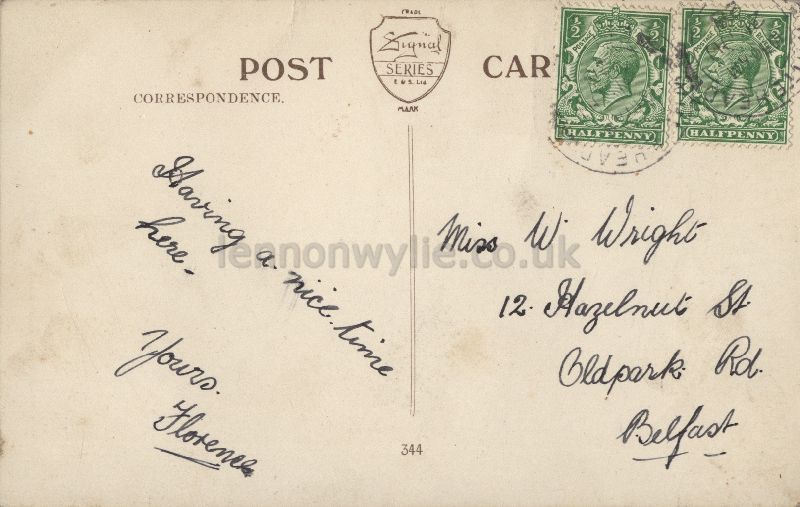 TRADE
Signal
SERIES
E & S. Ltd
MARK
POST CAR
CORRESPONDENCE.
1/2 1/2
POSTAGE
HALFPENNY
1/2 1/2
POSTAGE
HALFPENNY
Having a nice time
here.
Yours.
Florence
Miss W. Wright
12. Hazelnut St
Oldpark Rd.
Belfast
344
lennonwylie.co.uk